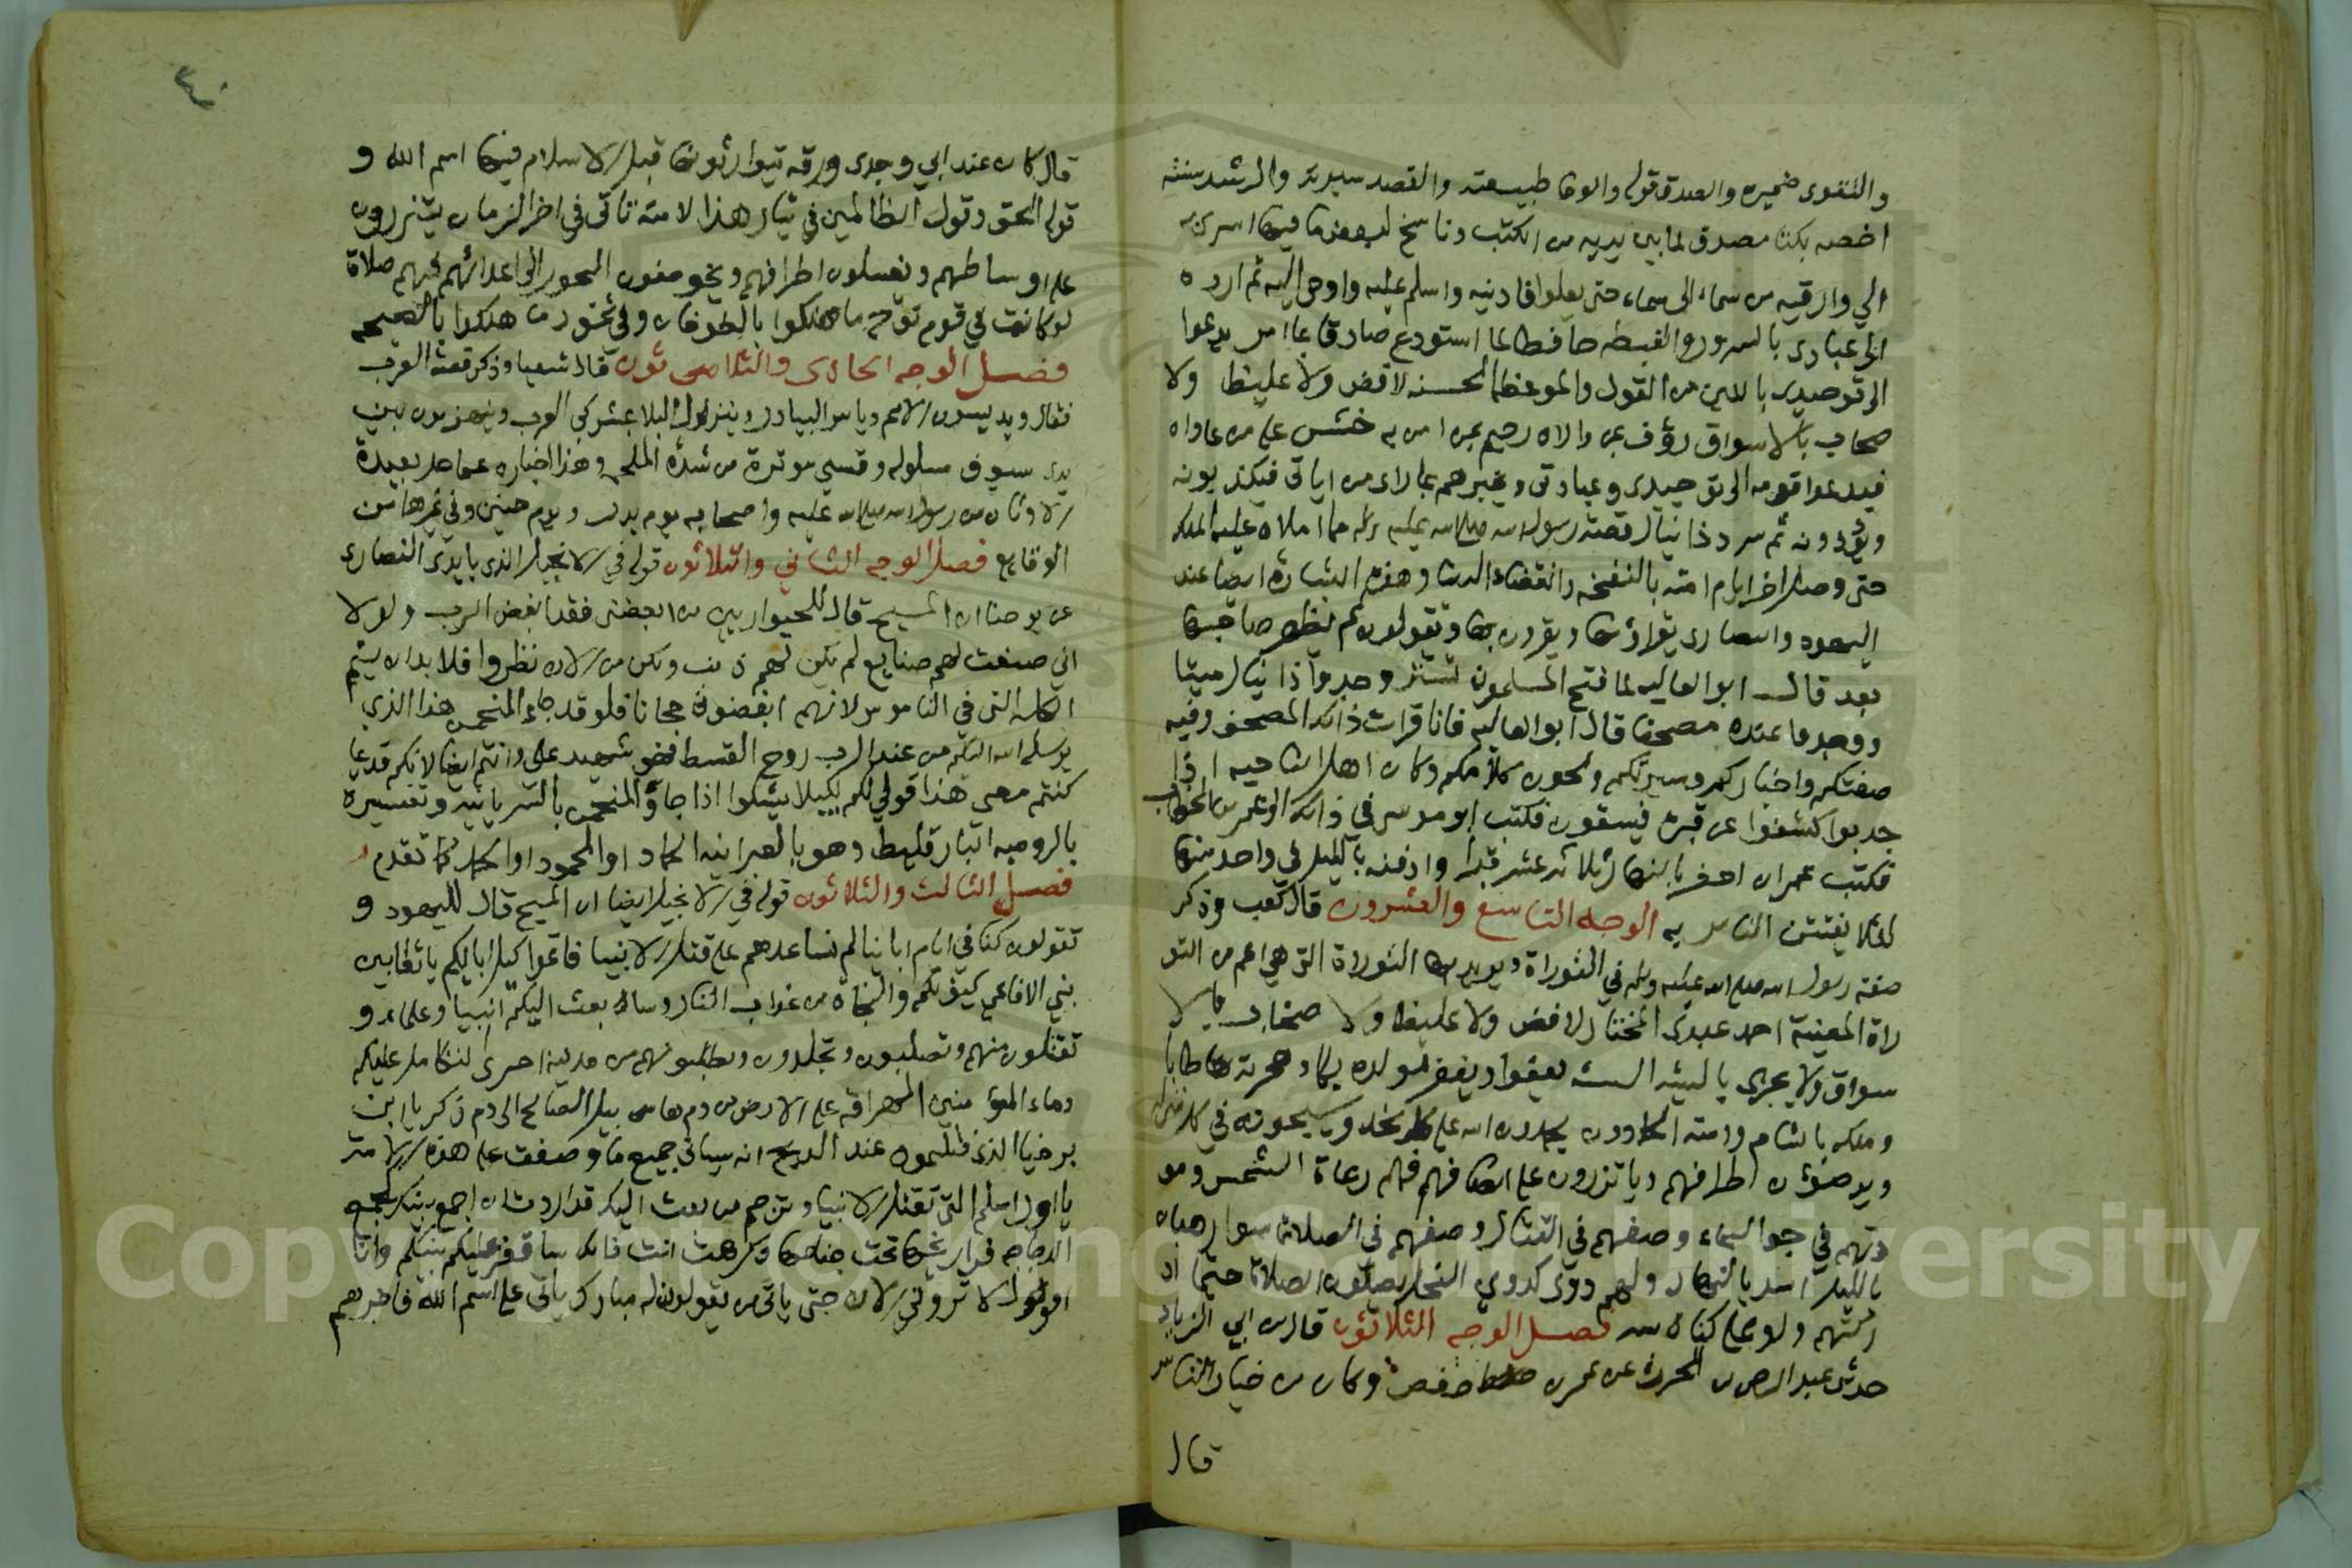 والتقوى ضميره والصدق قوله والوفا طبيعته والقصد سيرته والرشد سنته
اخصه بكتاب مصدق لما بين يديه من الكتب وناسخ لبعض ما فيها اسري به
الي وارقيه من سماء الى سماء حتى يعلوا فادنيه واسلم عليه واوحي اليه ثم ارده
الى عبادى بالسرور والغبطه حافظا لما استودع صادقا بما امر يدعوا
الى توحيدى باللين من القول والموعظه الحسنه لا فض ولا غليظ ولا
صحاب بالاسواق رؤف بمن والاه رحيم بمن امن به خشن على من عاداه
فيدعوا قومه الى توحيدى وعبادتى ويخبرهم بما راى من اياتى فيكذبونه
ويؤذونه ثم سرد ذانيال قصة رسول الله صلى الله عليه وسلم مما املاه عليه الملك
حتى وصل اخر ايام امته بالنفخه وانقضاء الدنيا وهذه البشارة ايضا عند
اليهود والنصارى يقراؤنها ويقرون بها ويقولون لم يظهر صاحبها
بعد قال ابو العاليه لما فتح المسلمون تستر وجدوا ذانيال ميتا
ووجدوا عنده مصحفا قال ابو العاليه فانا قرات ذالك المصحف وفيه
صفتكم واخباركم وسيرتكم ولحون كلامكم وكان اهل الناحيه اذا
جدبوا كشفوا عن قبره فيسقون فكتب ابو موسى في ذالك الى عمر بن الخطاب
فكتب عمر ان احفر بالنهار ثلاثة عشر قبرا وادفنه بالليل في واحد منها
لئلا يفتتن الناس به الوجه التاسع والعشرون قال كعب وذكر
صفة رسول الله صلى الله عليه وسلم في التوراة ويريد بها التوراة التى هي اعم من التو
راة المعينة احمد عبدى المختار لا فض ولا غليظ ولا صخاب بالا
سواق ولا يجزى بالسيئه السيئه يعفوا ويغفر مولده بكا وهجرته طابا
وملكه بالشام وامته الحمادون يحمدون الله على كل نجد ويسبحونه في كل منزله
ويوضؤن اطرافهم وياتزرون على انصافهم وهم رعاة الشمس ومو
ذنهم في جو السماء وصفهم في القتال وصفهم في الصلاة سوا رهبان
بالليل اسد بالنهار ولهم دوى كدوي النحل يصلون الصلاة حيثما اد
ركتهم ولو على كناسه فصل الوجه الثلاثون قال بن ابي الزناد
حدثني عبد الرحمن بن الحرث عن عمر بن حفص وكان من خيار الناس
قال
٤٠
قال كان عند ابي وجدى ورقه يتوارثونها قبل الاسلام فيها اسم الله و
قوله الحق وقول الظالمين في تبار هذا لامة تاتى في اخر الزمان يتزرون
على اوساطهم ويغسلون اطرافهم ويخوضون البحور الى اعدائهم فيهم صلاة
لو كانت في قوم نوح ما هلكوا بالطوفان وفي ثمود ما هلكوا بالصيحه
فصل الوجه الحادى والثلاثون قال شعيا وذكر قصة العرب
فقال ويديسون الامم دياس البيادر وينزل البلا بمشركي العرب وينهزمون بين
يدى سيوف مسلوله وقسي موترة من شدة الملحمه وهذا اخباره عما حل بعبدة
الاوثان من رسول الله صلى الله عليه واصحابه يوم بدر ويوم حنين وفي غيرها من
الوقايع فصل الوجه الثاني والثلاثون قوله في الانجيل الذى بايدى النصارى
عن يوحنا ان المسيح قال للحواريين من ابغضنى فقد ابغض الرب ولولا
اني صنعت لهم صنايع لم يكن لهم ذنب ولكن من الان نظروا فلا بد ان يتم
الكلمه التى في الناموس لانهم ابغضوني مجانا فلو قد جاء المنحمن هذا الذي
يرسله الله اليكم من عند الرب روح القسط فهو شهيد على وانتم ايضا لانكم قديما
كنتم معي هذا قولي لكم لكيلا يشكوا اذا جاؤ المنحمن بالسريانيه وتفسيره
بالروميه البارقليط وهو بالعبرانيه الحماد او المحمود او الحمد كما تقدم
فصل الثالث والثلاثون قوله في الانجيل ايضا ان المسيح قال لليهود و
تقولون كنا في ايام ابائنا لم نساعدهم على قتل الانبيا فاتموا كيل ابائكم ياثعابين
بني الافاعي كيف لكم والنجاة من عذاب النار وسابعث اليكم انبيا وعلماء و
تقتلون منهم وتصلبون وتجلدون وتطلبونهم من مدينة اخرى لتتكامل عليكم
دماء المؤمنين المهراقه على الارض من دم هابيل الصالح الى دم زكريا ابن
برخيا الذى قتلتموه عند المذبح انه سياتى جميع ما وصفت على هذه الامة
يا اورشليم التى تقتل الانبيا وترجم من بعث اليك قد اردت ان اجمع بنيك كجمع
الدجاجه فراريخها تحت جناحها وكرهت انت فانك ساقفر عليكم بيتكم وانا
اقول لا تروني الان حتى ياتى من يقولون له مبارك ياتى على اسم الله فاخبرهم